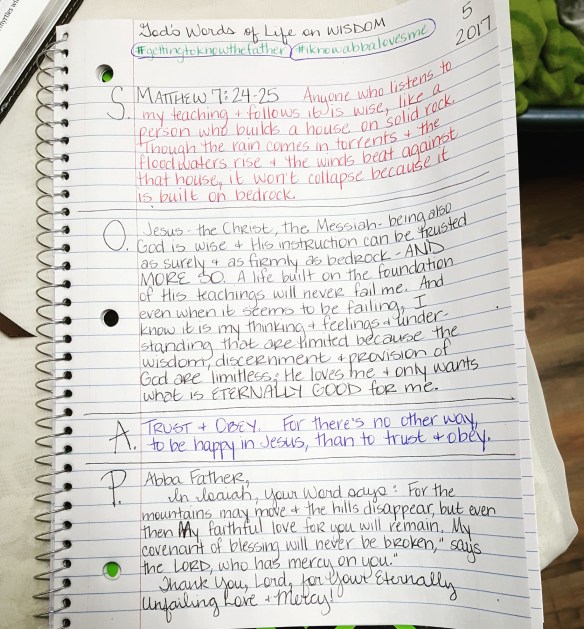 God's Words of Life on WISDOM
5
2017
#gettingtoknowthefather #iknowabbalovesme
S. MATTHEW 7:24-25 Anyone who listens to
my teaching + follows it is wise, like a
person who builds a house on solid rock.
Though the rain comes in torrents + the
floodwaters rise + the winds beat against
that house, it won't collapse because it
is built on bedrock.
O. Jesus - the Christ, the Messiah - being also
God is wise + His instruction can be trusted
as surely + as firmly as bedrock - AND
MORE SO. A life built on the foundation
of His teachings will never fail me. And
even when it seems to be failing, I
know it is my thinking + feelings + under-
standing that are limited because the
wisdom, discernment + provision of
God are limitless; He loves me + only wants
what is ETERNALLY GOOD for me.
A. TRUST + OBEY. For there's no other way,
to be happy in Jesus, than to trust + obey.
P. Abba Father,
In Isaiah, your Word says: For the
mountains may move + the hills disappear, but even
then My faithful love for you will remain. My
covenant of blessing will never be broken," says
the LORD, who has mercy on you."
Thank You, Lord, for Your Eternally
Unfailing Love + Mercy!